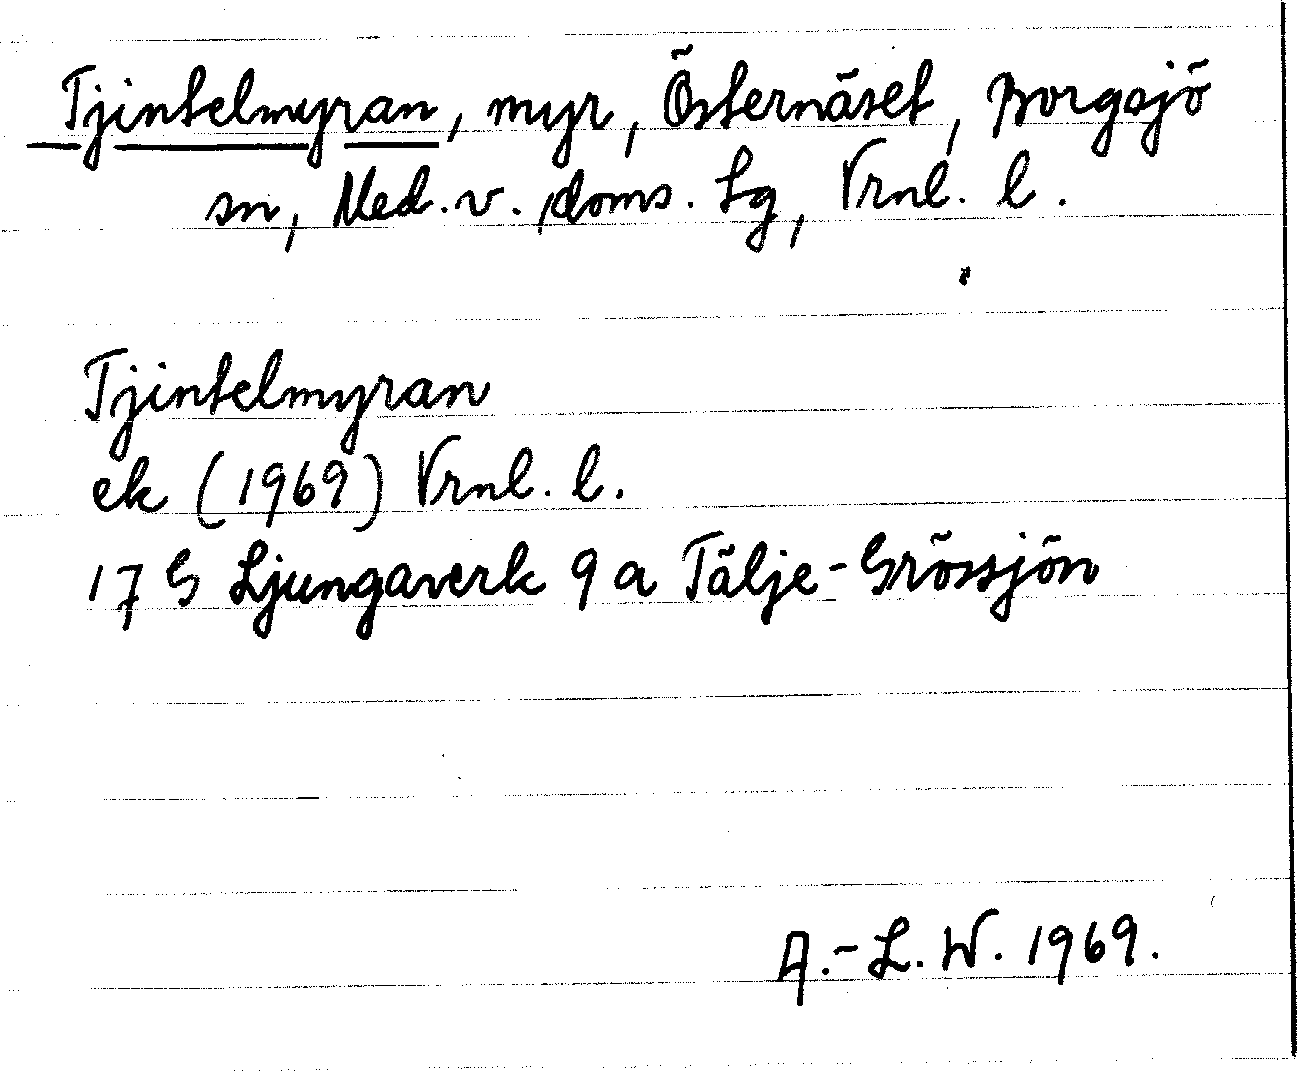 Tjintelmyran, myr, Östernäset, Borgsjö
sn, Med. v. doms. Lg, Vrnl. l.
Tjintelmyran
ek (1969) Vrnl. l.
17 G Ljungaverk 9 a Tälje-Grössjön
A.-L. W. 1969.